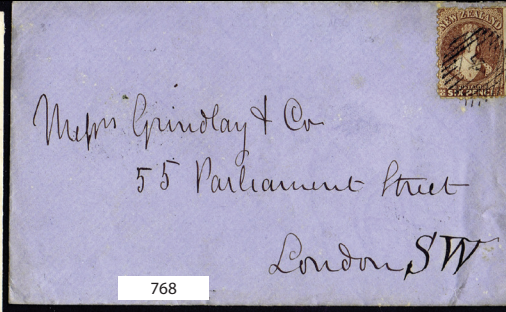 NEW ZEALAND
SIX PENCE
Messrs Grindlay & Co
55 Parliament Street
London SW
768